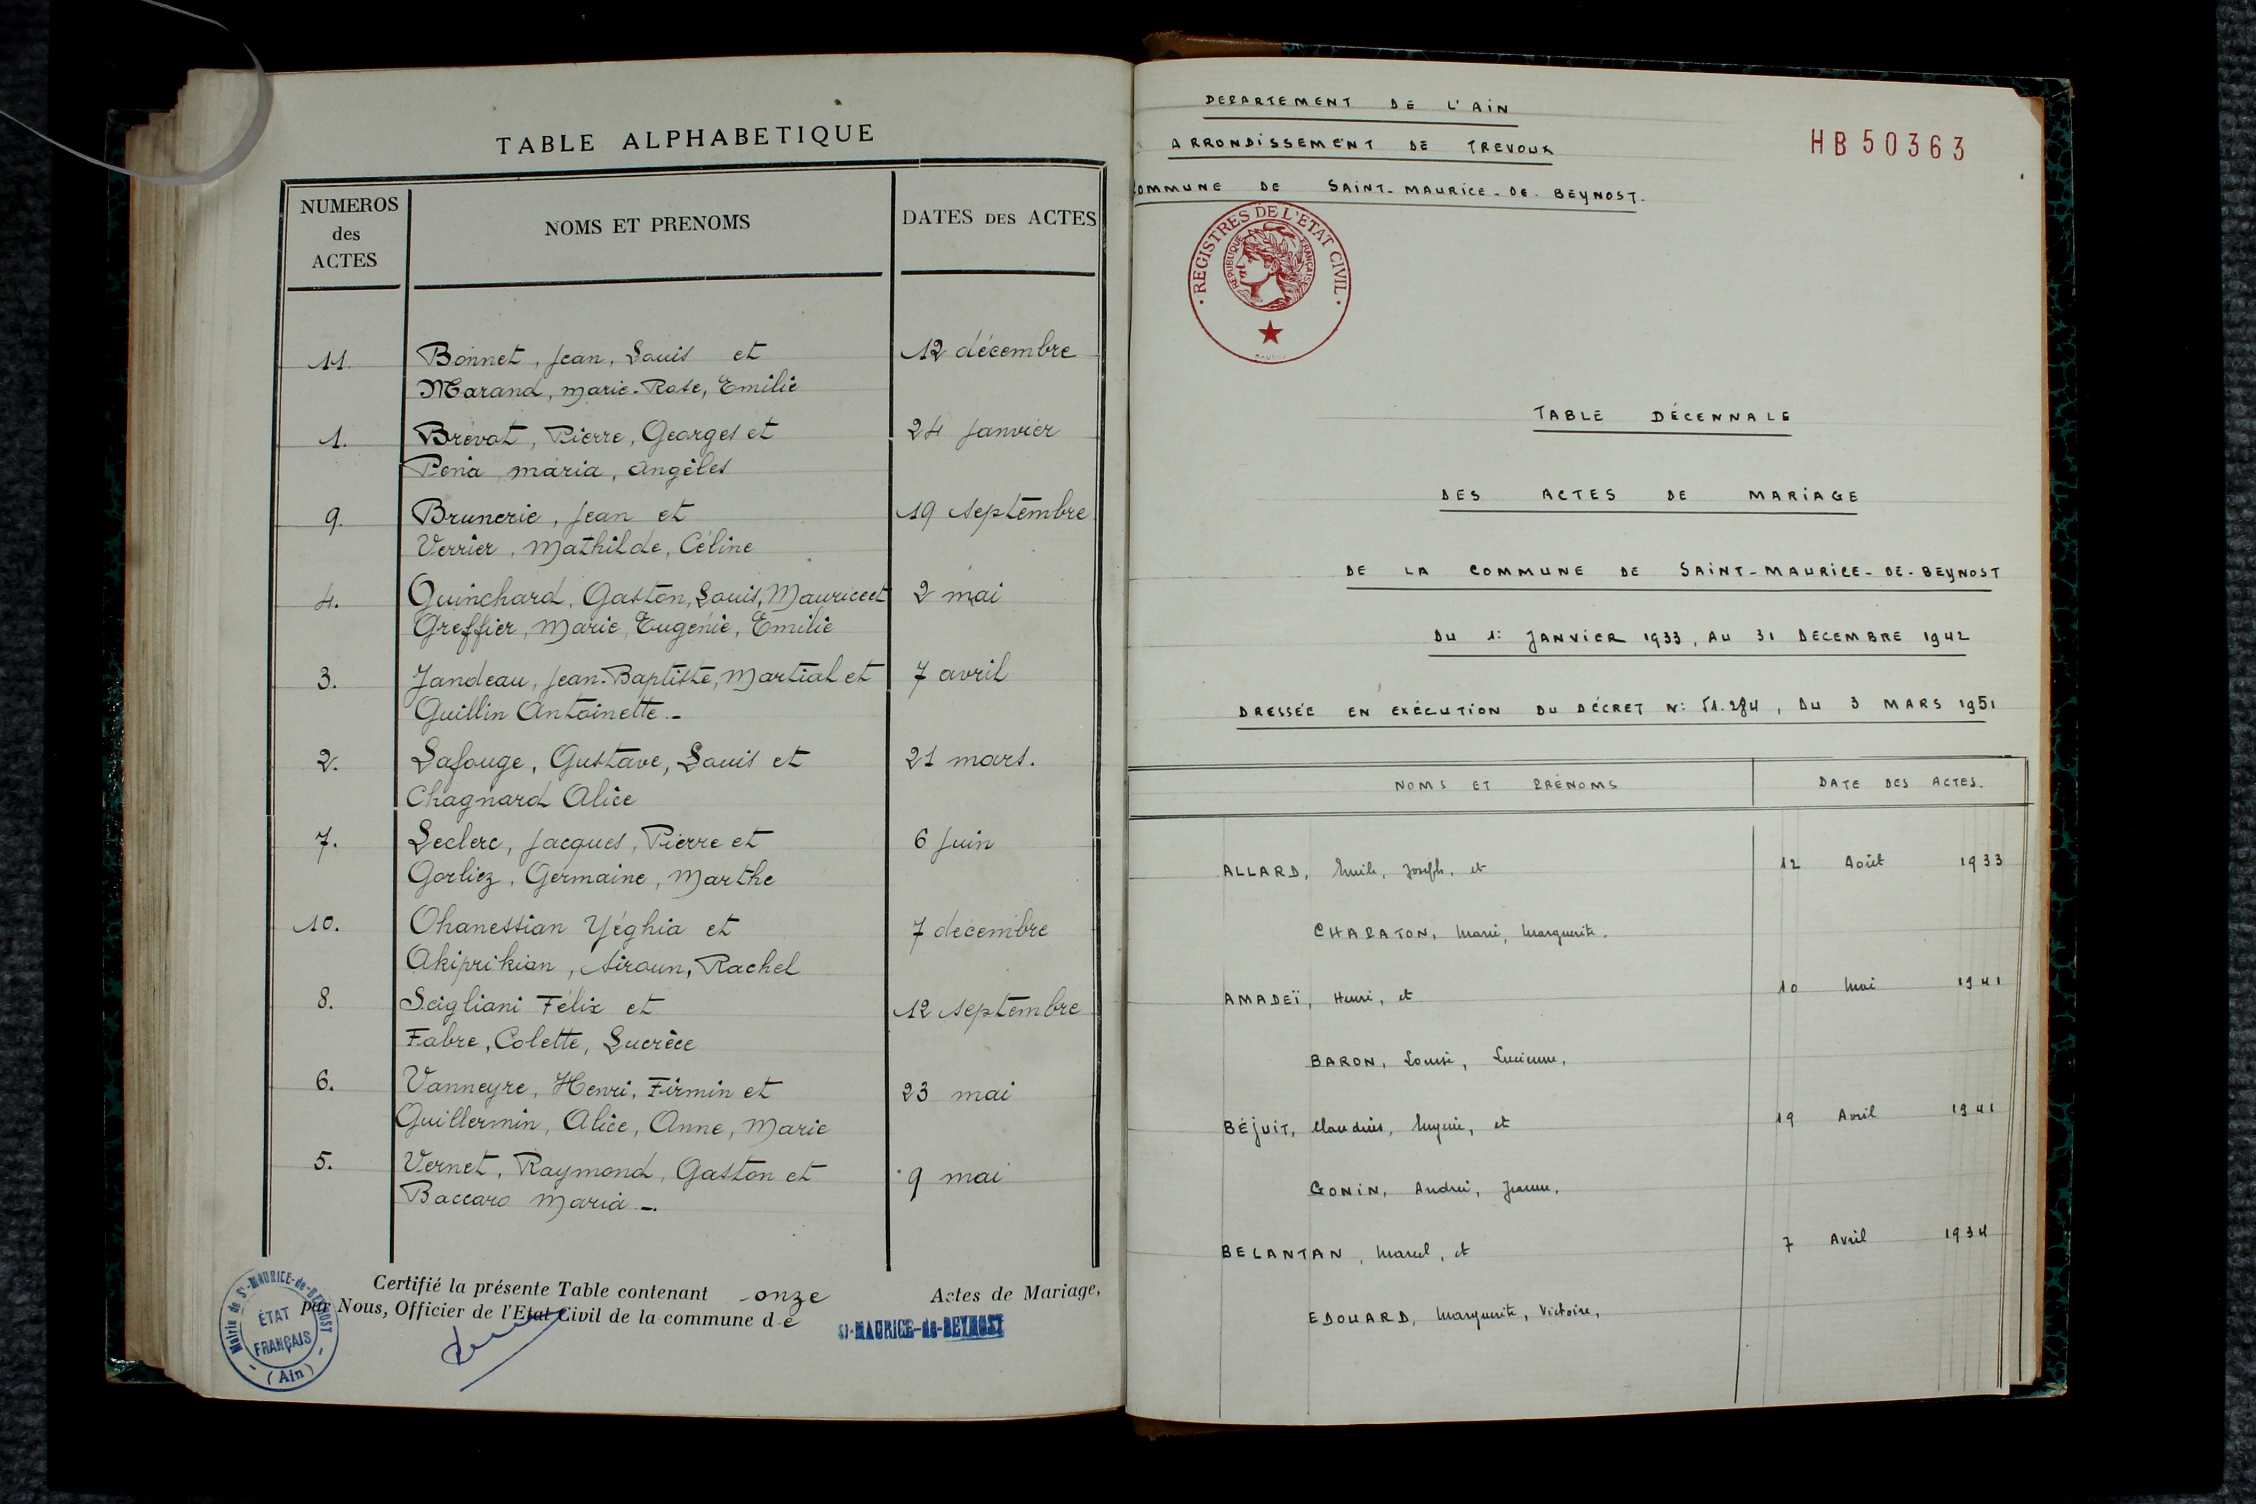 TABLE ALPHABETIQUE
NUMEROS
des
ACTES
NOMS ET PRENOMS
DATES DES ACTES
11. Bonnet, Jean, Louis et 12 décembre
Marand, Marie-Rose, Emilie
1. Brevat, Pierre, Georges et 24 Janvier
Pena Maria, Angèles
9. Brunerie, Jean et 19 septembre
Verrier, Mathilde, Céline
4. Guinchard, Gaston, Louis, Maurice et 2 mai
Greffier, Marie, Eugénie, Emilie
3. Jandeau, Jean-Baptiste, Martial et 7 avril
Guillin Antoinette.-
2. Lafouge, Gustave, Louis et 21 mars.
Chagnard Alice
7. Leclerc, Jacques, Pierre et 6 Juin
Gorliez, Germaine, Marthe
10. Ohanessian Yéghia et 7 décembre
Akiprikian, Siroun, Rachel
8. Scigliani Félix et 12 septembre
Fabre, Colette, Lucrèce
6. Vanneyre, Henri, Firmin et 23 mai
Guillermin, Alice, Anne, Marie
5. Vernet, Raymond, Gaston et 9 mai
Baccaro Maria -.
Certifié la présente Table contenant onze Actes de Mariage,
par Nous, Officier de l'Etat Civil de la commune de
St-MAURICE-de-BEYNOST
Mairie de St-MAURICE-de-BEYNOST
ÉTAT
FRANÇAIS
(Ain)
DEPARTEMENT DE L'AIN
ARRONDISSEMENT DE TREVOUX
COMMUNE DE SAINT-MAURICE-DE-BEYNOST.
HB50363
REGISTRES DE L'ETAT CIVIL
REPUBLIQUE FRANÇAISE
TABLE DÉCENNALE
DES ACTES DE MARIAGE
DE LA COMMUNE DE SAINT-MAURICE-DE-BEYNOST
DU 1: JANVIER 1933, AU 31 DECEMBRE 1942
DRESSÉE EN EXÉCUTION DU DÉCRET N: 51.284, DU 3 MARS 1951
NOMS ET PRÉNOMS DATE DES ACTES.
ALLARD, Emile, Joseph, et 12 Août 1933
CHAPATON, Marie, Marguerite.
AMADEÏ, Henri, et 10 Mai 1941
BARON, Louise, Lucienne,
BÉJUIT, Claudius, Eugène, et 19 Avril 1941
GONIN, Andrée, Jeanne,
BELANTAN, Marcel, et 7 Avril 1934
EDOUARD, Marguerite, Victoire,